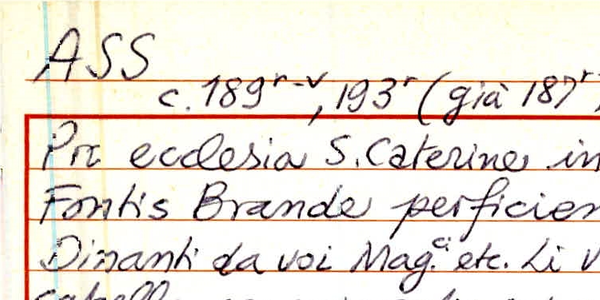 ASS
c. 189r-v, 193r (già 187r
Pro ecclesia S. Caterine in
Fontis Brande perficien
Dinanti da voi Mag.ci etc. Li